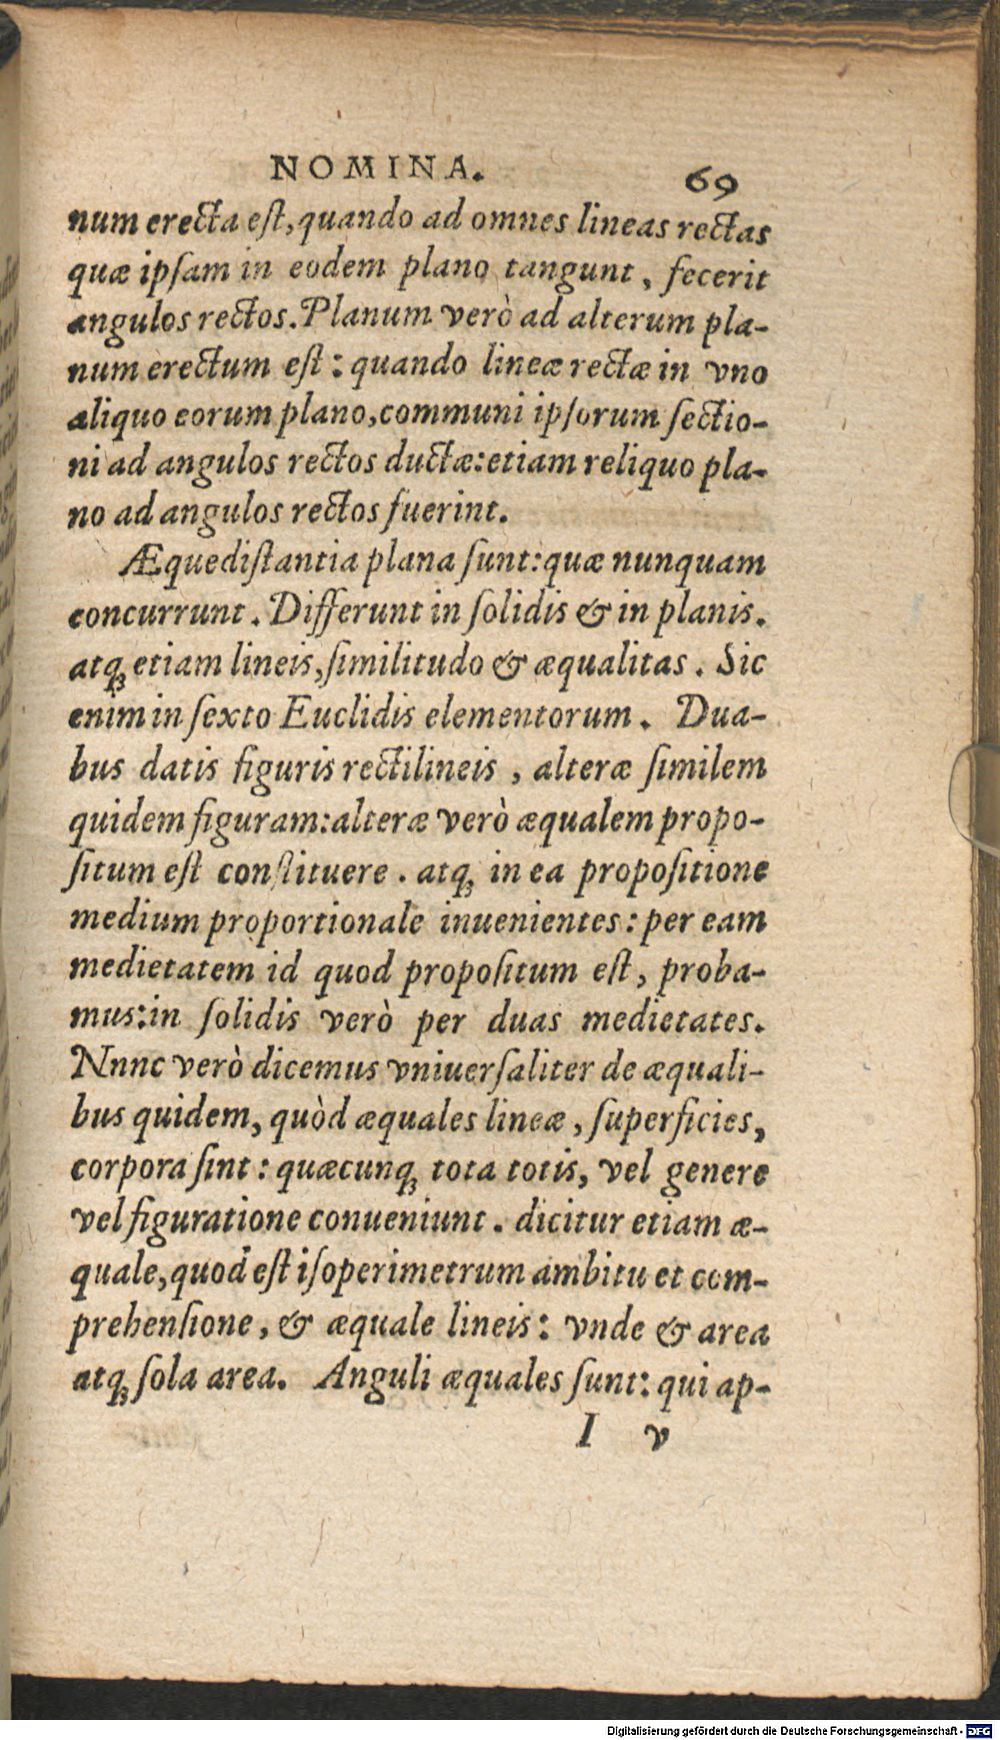 NOMINA. 69
num erecta eſt, quando ad omnes lineas rectas
quæ ipſam in eodem plano tangunt, fecerit
angulos rectos. Planum verò ad alterum pla-
num erectum eſt: quando lineæ rectæ in vno
aliquo eorum plano, communi ipſorum ſectio-
ni ad angulos rectos ductæ: etiam reliquo pla-
no ad angulos rectos fuerint.
Æquediſtantia plana ſunt: quæ nunquam
concurrunt. Differunt in ſolidis & in planis.
atq; etiam lineis, ſimilitudo & æqualitas. Sic
enim in ſexto Euclidis elementorum. Dua-
bus datis figuris rectilineis, alteræ ſimilem
quidem figuram: alteræ verò æqualem propo-
ſitum eſt conſtituere. atq; in ea propoſitione
medium proportionale inuenientes: per eam
medietatem id quod propoſitum eſt, proba-
mus: in ſolidis verò per duas medietates.
Nnnc verò dicemus vniuerſaliter de æquali-
bus quidem, quòd æquales lineæ, ſuperficies,
corpora ſint: quæcunq; tota totis, vel genere
vel figuratione conueniunt. dicitur etiam æ-
quale, quod eſt iſoperimetrum ambitu et com-
prehenſione, & æquale lineis: vnde & area
atq; ſola area. Anguli æquales ſunt: qui ap-
I v
Digitalisierung gefördert durch die Deutsche Forschungsgemeinschaft - DFG